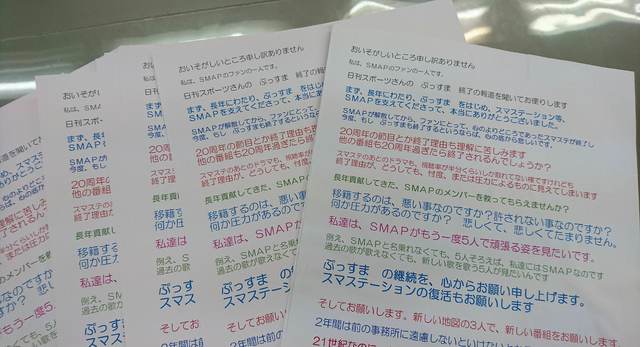 おいそがしいところ申し訳ありません
私は、SMAPのファンの一人です。
日刊スポーツさんの ぷっすま 終了の報道を聞いてお便りします
まず、長年にわたり、ぷっすま をはじめ、スマステーション等、
SMAPを支えてくださって、本当にありがとうございました。
SMAPが解散してから、ファンにとって、心のよりどころであったスマステが終了し
今度、もし ぷっすまも終了するというなら、心の底から悲しいです。
20周年の節目とか終了理由も理解に苦しみます
他の番組も20周年過ぎたら終了されるんでしょうか?
スマステのあとのドラマも、視聴率が半分くらいしか取れてない様ですけれども
終了理由が、どうしても、忖度、または圧力によるものに見えてしまいます
長年貢献してきた、SMAPのメンバーを救ってもらえませんか?
移籍するのは、悪い事なのですか?許されない事なのですか?
何か圧力があるのですか? 悲しくて、悲しくてたまりません。
私達は、SMAPがもう一度5人で頑張る姿を見たいです。
例え、SMAPと名乗れなくても、5人そろえば、私達にはSMAPなのです
過去の歌が歌えなくても、新しい歌を歌う5人が見たいんです
ぷっすま の継続を、心からお願い申し上げます。
スマステーションの復活もお願いします
そしてお願いします。新しい地図の3人で、新しい番組をお願いします
2年間は前の事務所に遠慮しないといけないと